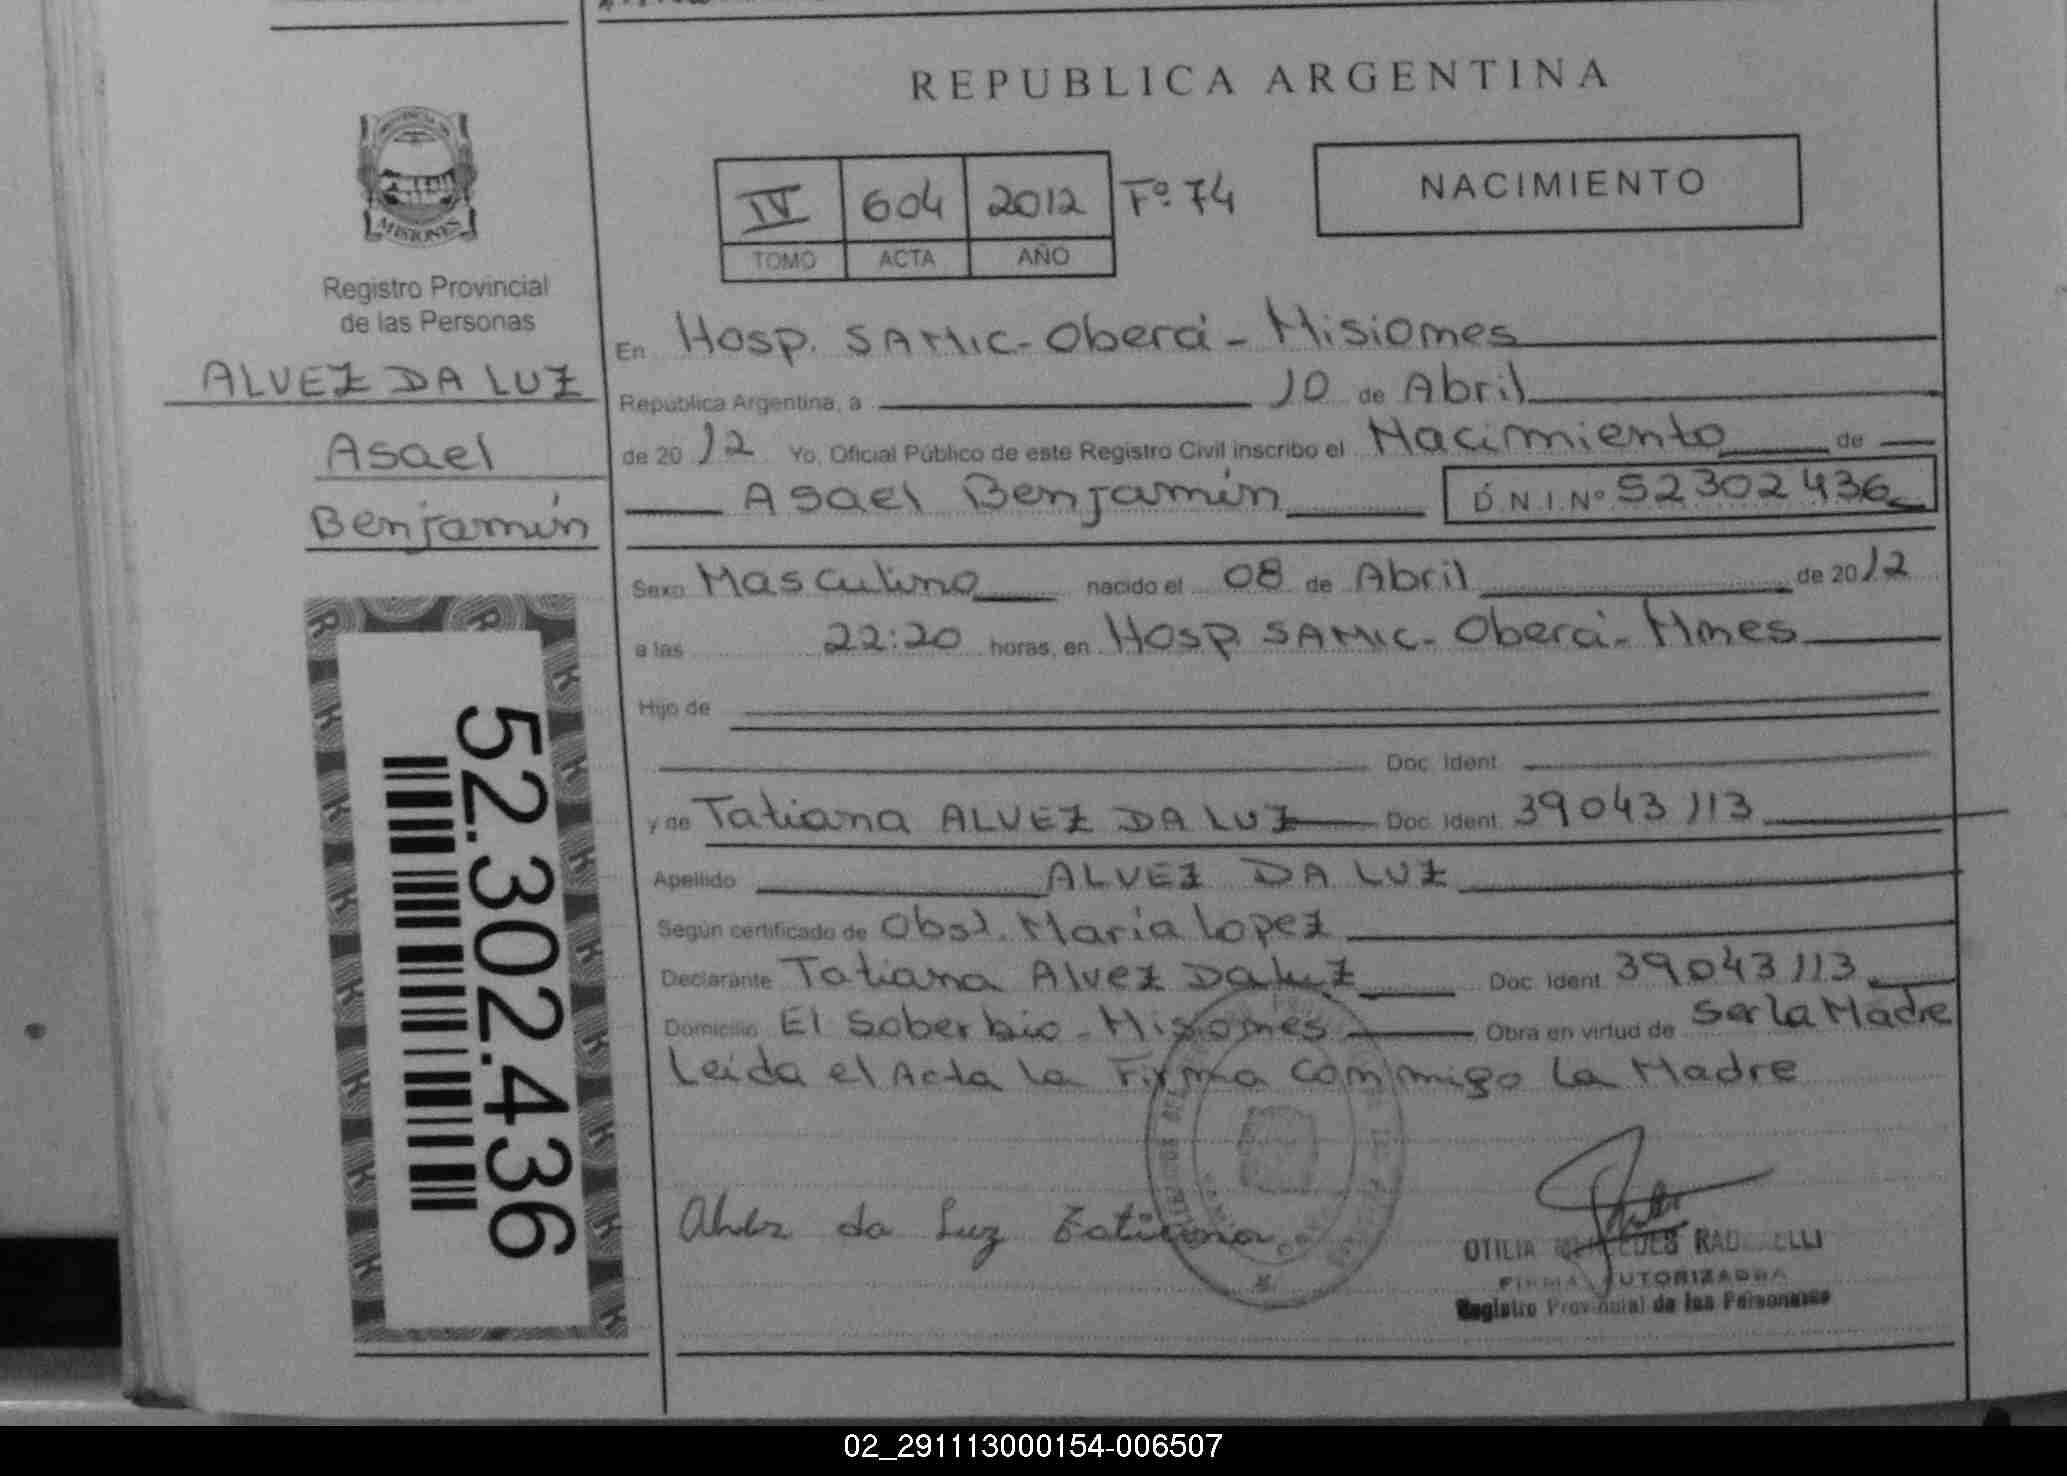 REPUBLICA ARGENTINA
PROVINCIA DE
MISIONES
Registro Provincial
de las Personas
ALVEZ DA LUZ
Asael
Benjamín
52.302.436
IV 604 2012 Fº 74
TOMO ACTA AÑO
NACIMIENTO
En Hosp. SAMIC - Oberá - Misiones
República Argentina, a 10 de Abril
de 2012 Yo, Oficial Público de este Registro Civil inscribo el Nacimiento de
Asael Benjamín D.N.I.Nº 52302436
Sexo Masculino nacido el 08 de Abril de 2012
a las 22:20 horas, en Hosp. SAMIC - Oberá - Mnes
Hijo de
Doc. Ident.
y de Tatiana ALVEZ DA LUZ Doc. Ident. 39043113
Apellido ALVEZ DA LUZ
Según certificado de Obst. María Lopez
Declarante Tatiana Alvez Da Luz Doc. Ident. 39043113
Domicilio El Soberbio - Misiones Obra en virtud de Ser la Madre
Leída el Acta la Firma conmigo la Madre
Alvez da Luz Tatiana
OTILIA
FIRMA AUTORIZADA
Registro Provincial de las Personas
02_291113000154-006507